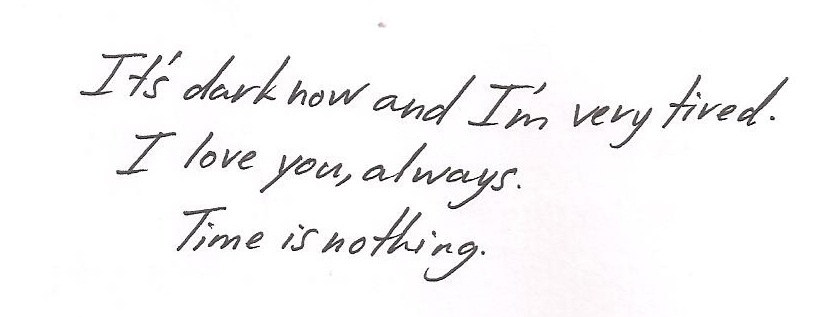 It's dark now and I'm very tired.
I love you, always.
Time is nothing.